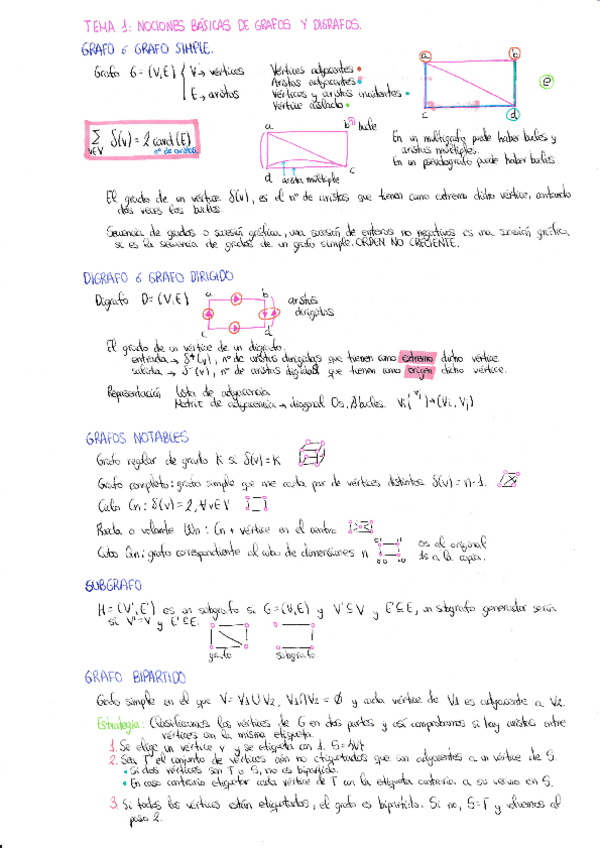 TEMA 1: NOCIONES BÁSICAS DE GRAFOS Y DIGRAFOS.
GRAFO ó GRAFO SIMPLE.
Grafo G = (V,E) { V → vértices
E → aristas
Vértices adyacentes
Aristas adyacentes
Vértices y aristas incidentes
Vértice aislado
a b
e
c d
∑ δ(v) = 2 card(E)
v∈V nº de aristas
a b bucle
d arista múltiple c
En un multigrafo puede haber bucles y
aristas múltiples.
En un pseudografo puede haber bucles.
El grado de un vértice δ(v), es el nº de aristas que tienen como extremo dicho vértice, contando
dos veces los bucles.
Secuencia de grados o sucesión gráfica, una sucesión de enteros no negativos es una sucesión gráfica
si es la secuencia de grados de un grafo simple. ORDEN NO CRECIENTE.
DIGRAFO ó GRAFO DIRIGIDO
Digrafo D = (V,E)
a b
c d
aristas
dirigidas
El grado de un vértice de un digrafo.
entrada → δ⁺(v), nº de aristas dirigidas que tienen como extremo dicho vértice.
salida → δ⁻(v), nº de aristas dirigidas que tienen como origen dicho vértice.
Representación Lista de adyacencia
Matriz de adyacencia → diagonal 0s, bucles. Vi( Vj ) → (Vi, Vj)
GRAFOS NOTABLES
Grafo regular de grado K si δ(v) = K
Grafo completo: grafo simple que une cada par de vértices distintos δ(v) = n-1.
Ciclo Cn: δ(v) = 2, ∀v∈V
Rueda o volante Wn: Cn + vértice en el centro
Cubo Qn: grafo correspondiente al cubo de dimensiones n
0s el original
1s a la copia.
SUBGRAFO
H = (V',E') es un subgrafo si G = (V,E) y V'⊆V y E'⊆E, un subgrafo generador sería
si V'=V y E'⊆E.
grafo subgrafo.
GRAFO BIPARTIDO
Grafo simple en el que V = V1∪V2, V1∩V2 = Ø y cada vértice de V1 es adyacente a V2.
Estrategia: Clasificamos los vértices de G en dos partes y así comprobamos si hay aristas entre
vértices con la misma etiqueta.
1. Se elige un vértice v y se etiqueta con 1. S = {v}
2. Sea T el conjunto de vértices aún no etiquetados que son adyacentes a un vértice de S.
• Si dos vértices son T o S, no es bipartido.
• En caso contrario etiquetar cada vértice de T con la etiqueta contraria a su vecino en S.
3. Si todos los vértices están etiquetados, el grafo es bipartido. Si no, S=T y volvemos al
paso 2.